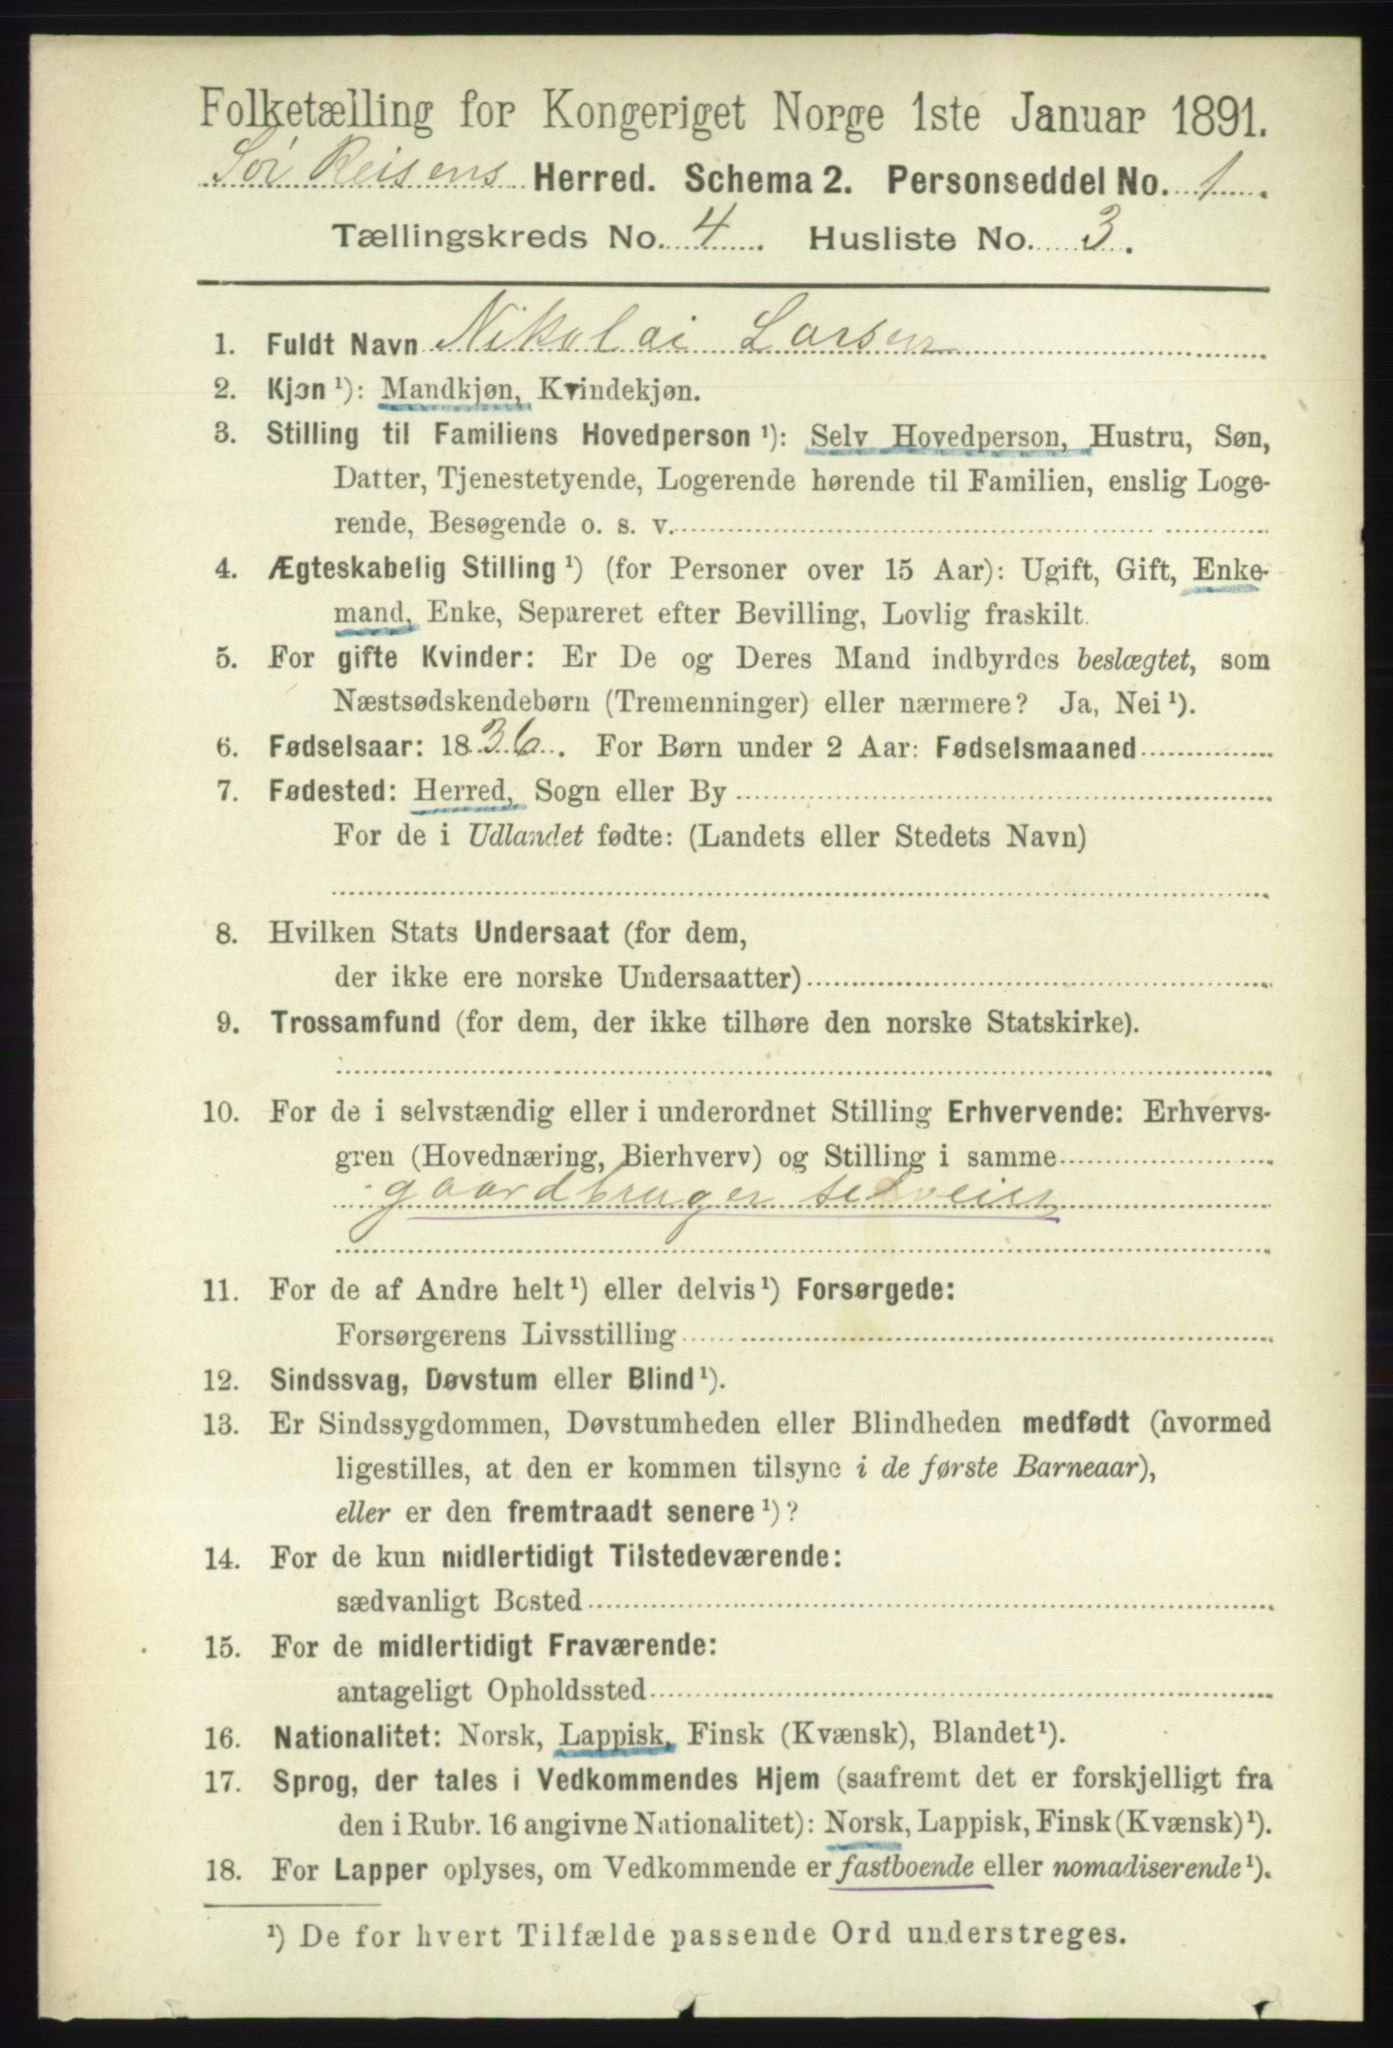 Folketælling for Kongeriget Norge 1ste Januar 1891.
Sör Reisens Herred. Schema 2. Personseddel No. 1.
Tællingskreds No. 4. Husliste No. 3.
1. Fuldt Navn Nikolai Larsen
2. Kjøn¹): Mandkjøn, Kvindekjøn.
3. Stilling til Familiens Hovedperson¹): Selv Hovedperson, Hustru, Søn,
Datter, Tjenestetyende, Logerende hørende til Familien, enslig Loge-
rende, Besøgende o. s. v.
4. Ægteskabelig Stilling¹) (for Personer over 15 Aar): Ugift, Gift, Enke-
mand, Enke, Separeret efter Bevilling, Lovlig fraskilt.
5. For gifte Kvinder: Er De og Deres Mand indbyrdes beslægtet, som
Næstsødskendebørn (Tremenninger) eller nærmere? Ja, Nei¹).
6. Fødselsaar: 1836. For Børn under 2 Aar: Fødselsmaaned
7. Fødested: Herred, Sogn eller By
For de i Udlandet fødte: (Landets eller Stedets Navn)
8. Hvilken Stats Undersaat (for dem,
der ikke ere norske Undersaatter)
9. Trossamfund (for dem, der ikke tilhøre den norske Statskirke).
10. For de i selvstændig eller i underordnet Stilling Erhvervende: Erhvervs-
gren (Hovednæring, Bierhverv) og Stilling i samme
gaardbruger selveier
11. For de af Andre helt¹) eller delvis¹) Forsørgede:
Forsørgerens Livsstilling
12. Sindssvag, Døvstum eller Blind¹).
13. Er Sindssygdommen, Døvstumheden eller Blindheden medfødt (hvormed
ligestilles, at den er kommen tilsyne i de første Barneaar),
eller er den fremtraadt senere¹)?
14. For de kun midlertidigt Tilstedeværende:
sædvanligt Bosted
15. For de midlertidigt Fraværende:
antageligt Opholdssted
16. Nationalitet: Norsk, Lappisk, Finsk (Kvænsk), Blandet¹).
17. Sprog, der tales i Vedkommendes Hjem (saafremt det er forskjelligt fra
den i Rubr. 16 angivne Nationalitet): Norsk, Lappisk, Finsk (Kvænsk)¹).
18. For Lapper oplyses, om Vedkommende er fastboende eller nomadiserende¹).
¹) De for hvert Tilfælde passende Ord understreges.